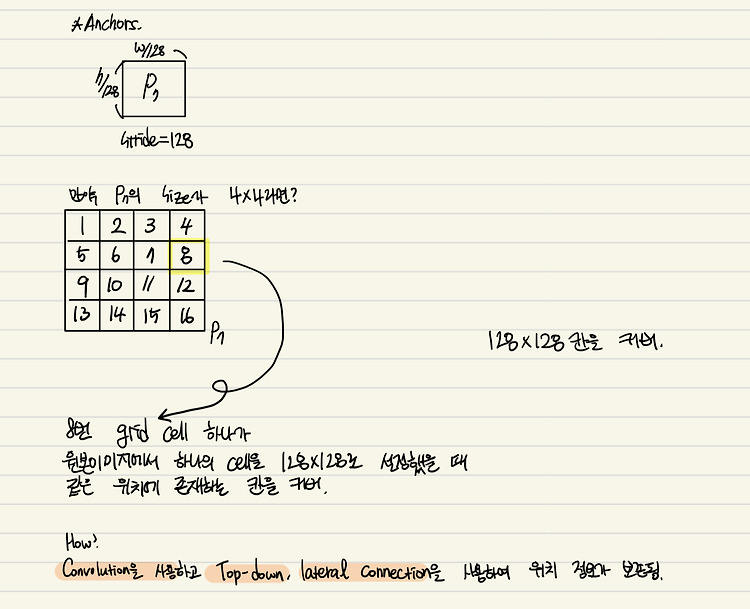 *Anchors.
w/128
h/128
P7
Stride=128
만약 P7의 Size가 4×4라면?
1 2 3 4
5 6 7 8
9 10 11 12
13 14 15 16
P7
128×128 칸을 커버.
8번 grid cell 하나가
원본이미지에서 하나의 cell을 128×128로 설정했을 때
같은 위치에 존재하는 칸을 커버.
How?
Convolution을 사용하고 Top-down, lateral connection을 사용하여 위치 정보가 보존됨.